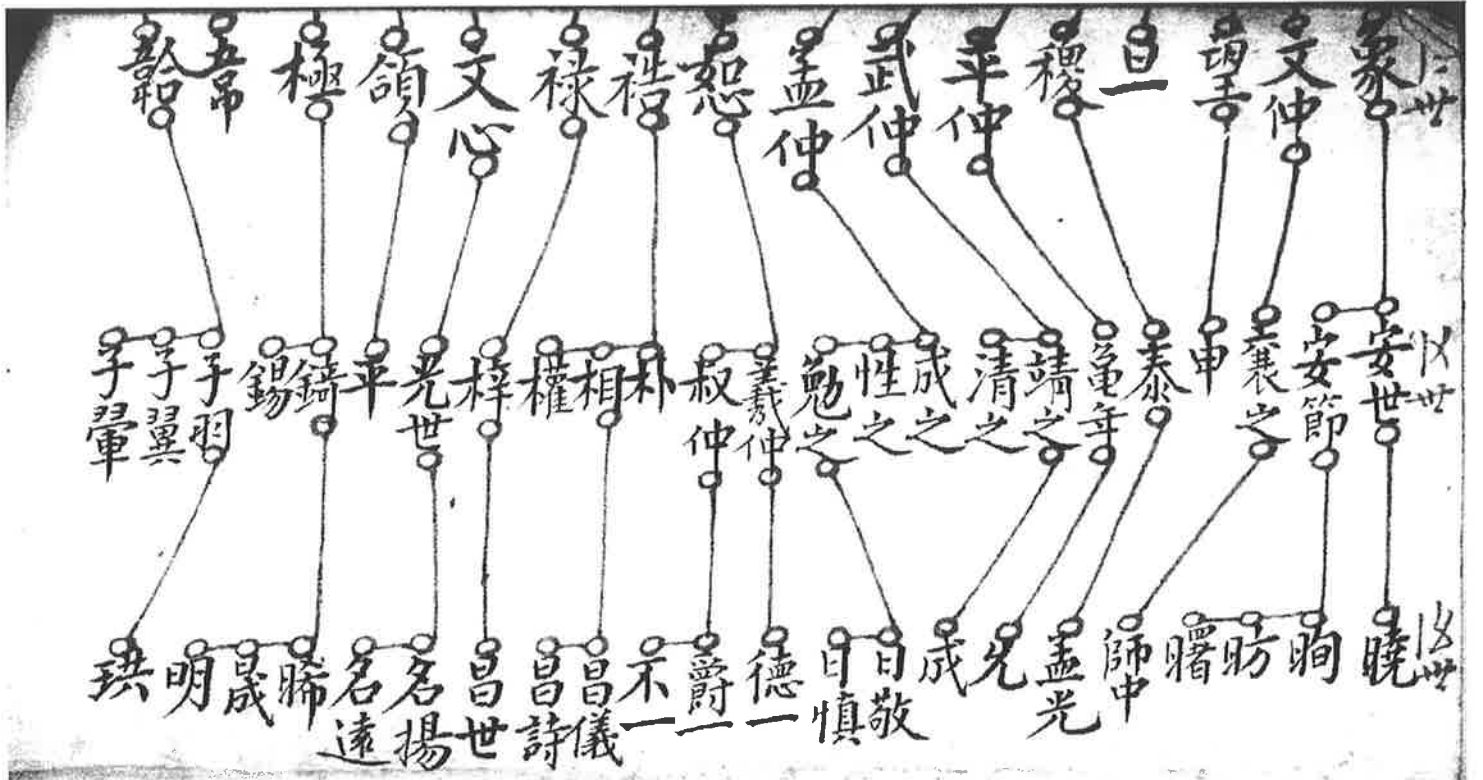 象 文仲 望 旦 稷 平仲 武仲 孟仲 恕 禄 文心 領 極
安世 安節 襄之 申 泰 龜年 靖之 清之 成之 性之 勉之 羲仲 叔仲 朴 相 權 梓 光世 平 錡 錫 子羽 子翼 子翬
曉 昫 昉 曙 師中 孟光 先 成 日敬 日慎 德 爵 不 昌儀 昌詩 昌世 名揚 名遠 晞 晟 明 珙